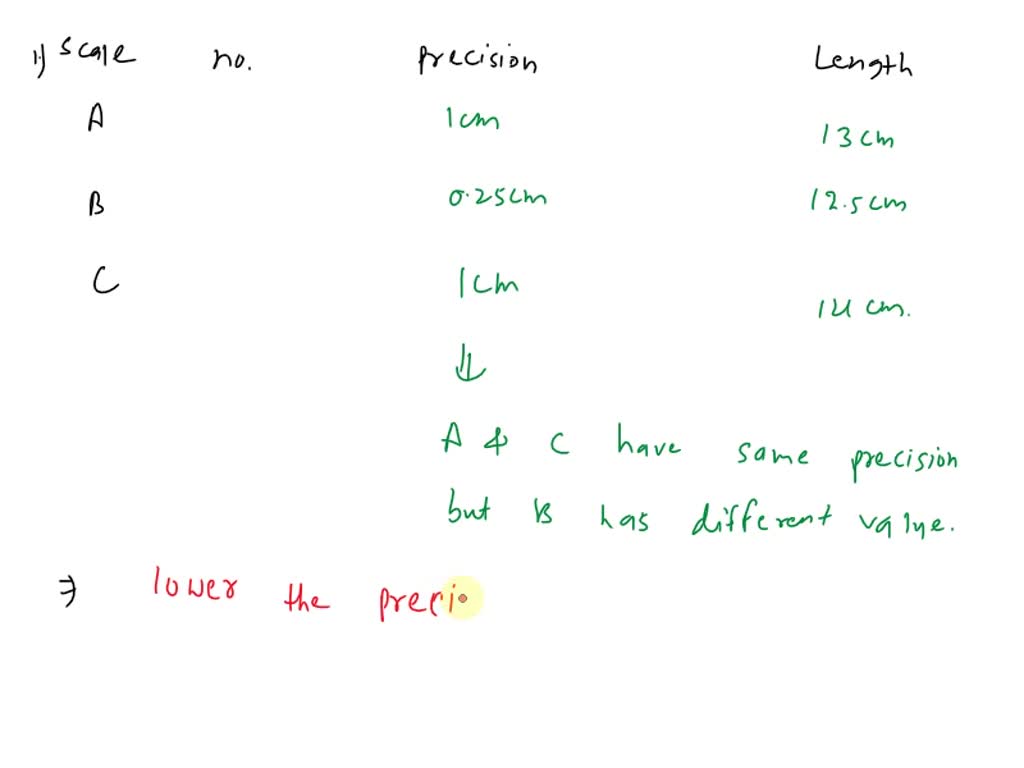 1) Scale no. Precision Length
A 1cm 13cm
B 0.25cm 12.5cm
C 1cm 14 cm.
A & C have same precision
but B has different value.
⇒ lower the preci